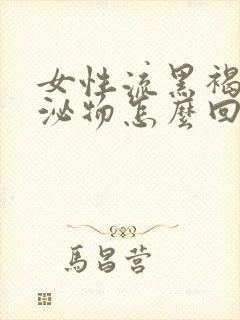 女性流黑褐
泌物怎麼回
馬昌营